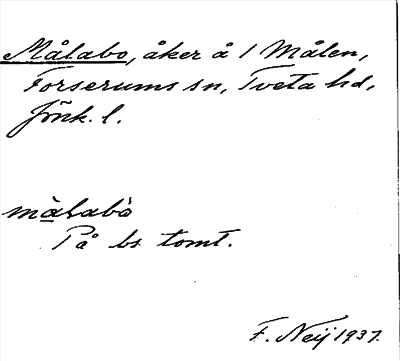 Målabo, åker å 1 Målen,
Forserums sn, Tveta hd,
Jönk. l.
må̀labò
På bs tomt.
F. Neij 1937.